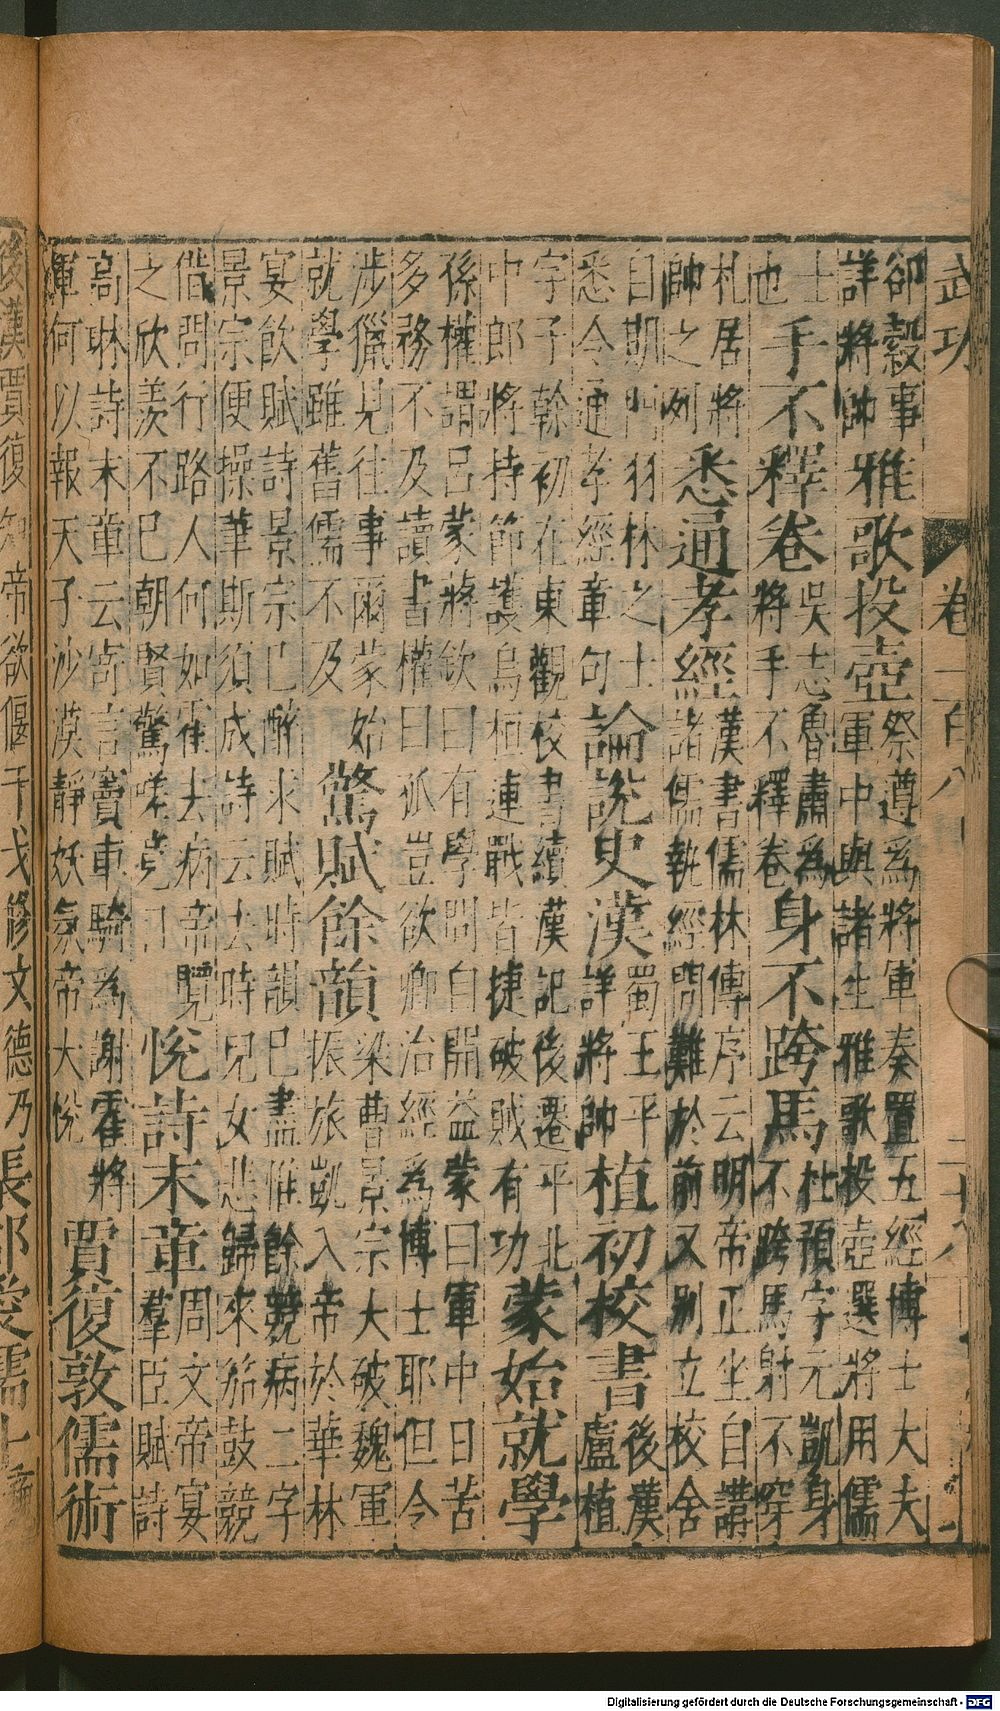 武功 卷一百八十 二十八
郤縠事
詳將帥
雅歌投壺
祭遵為將軍奏置五經博士大夫
軍中與諸生雅歌投壺選將用儒
士
也
手不釋卷
吳志魯肅為
將手不釋卷
身不跨馬
杜預字元凱身
不跨馬射不穿
札居將
帥之列
悉通孝經
漢書儒林傳序云明帝正坐自講
諸儒執經問難於前又別立校舍
自期門羽林之士
悉令通孝經章句
論說史漢
蜀王平
詳將帥
植初校書
後漢
盧植
字子幹初在東觀校書續漢記後遷平北
中郎將持節護烏桓連戰皆捷破賊有功
蒙始就學
孫權謂呂蒙蔣欽曰有學問自開益蒙曰軍中日苦
多務不及讀書權曰孤豈欲卿治經為博士耶但令
涉獵見往事爾蒙始
就學雖舊儒不及
驚賦餘韻
梁曹景宗大破魏軍
振旅凱入帝於華林
宴飲賦詩景宗已醉求賦時韻已盡惟餘競病二字
景宗便操筆斯須成詩云去時兒女悲歸來笳鼓競
借問行路人何如霍去病帝覽
之欣羨不已朝賢驚嗟竟日
悅詩末章
周文帝宴
羣臣賦詩
高琳詩末章云寄言竇車騎為謝霍將
軍何以報天子沙漠靜妖氛帝大悅
賈復敦儒術
後漢賈復知帝欲偃干戈修文德乃
張郃愛儒士
Digitalisierung gefördert durch die Deutsche Forschungsgemeinschaft - DFG